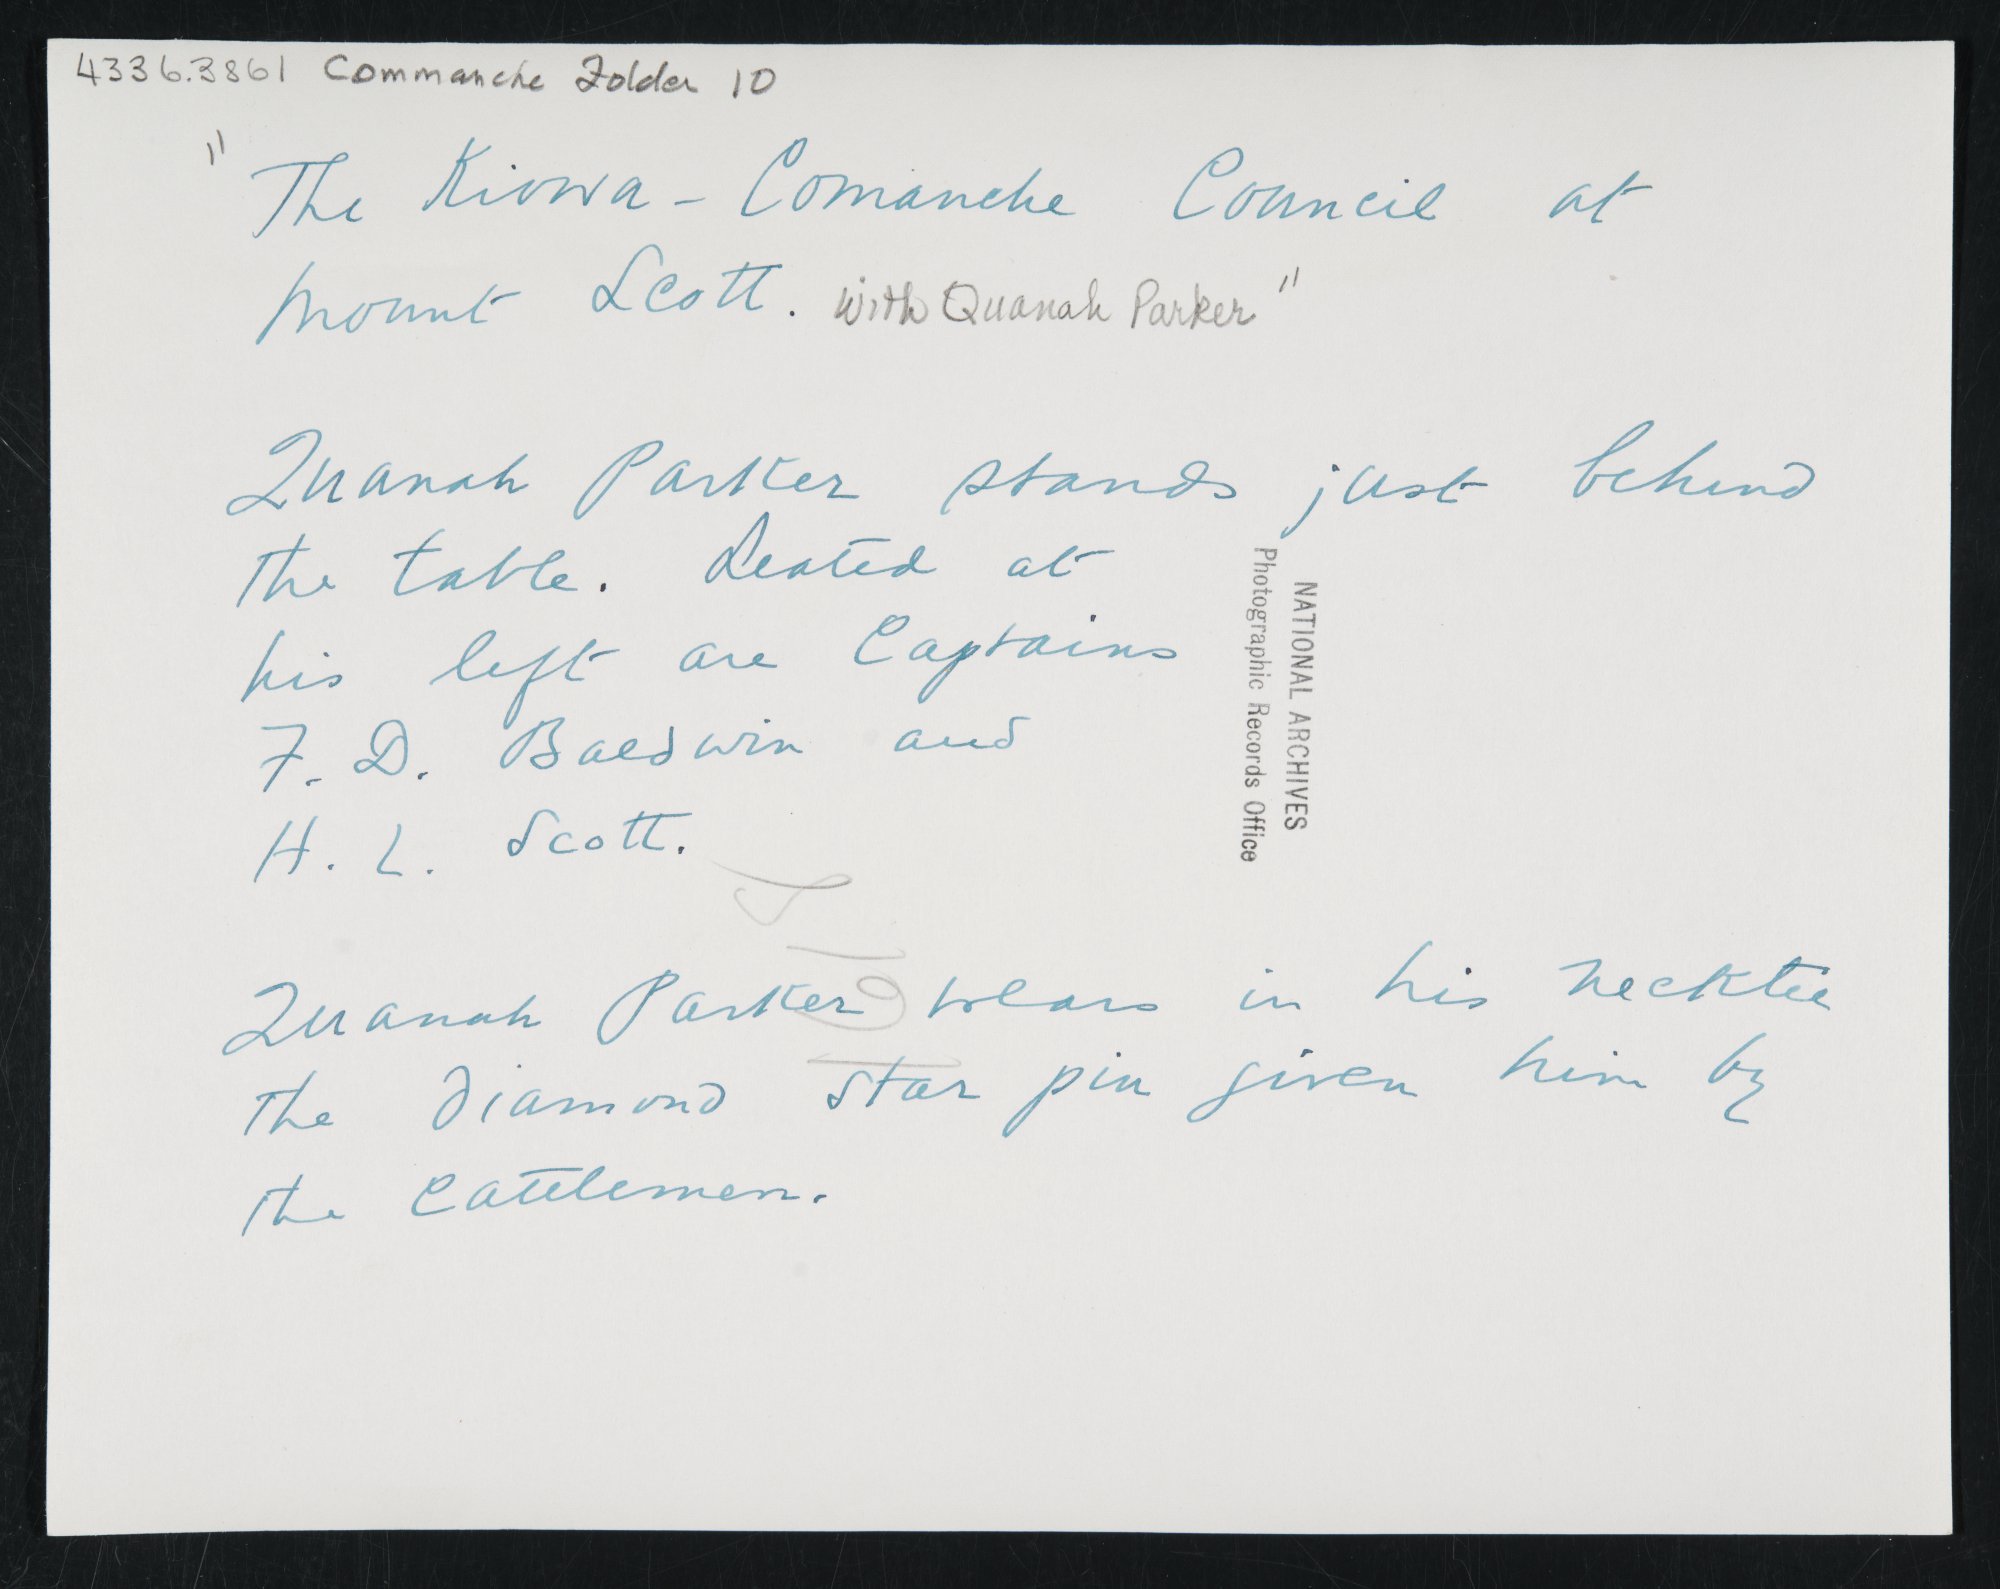 4336.3861 Commanche Folder 10
"The Kiowa - Comanche Council at
Mount Scott. with Quanah Parker"
Quanah Parker stands just behind
the table. Seated at
his left are Captains
F. D. Baldwin and
H. L. Scott.
NATIONAL ARCHIVES
Photographic Records Office
Quanah Parker wears in his necktie
the diamond star pin given him by
the cattlemen.